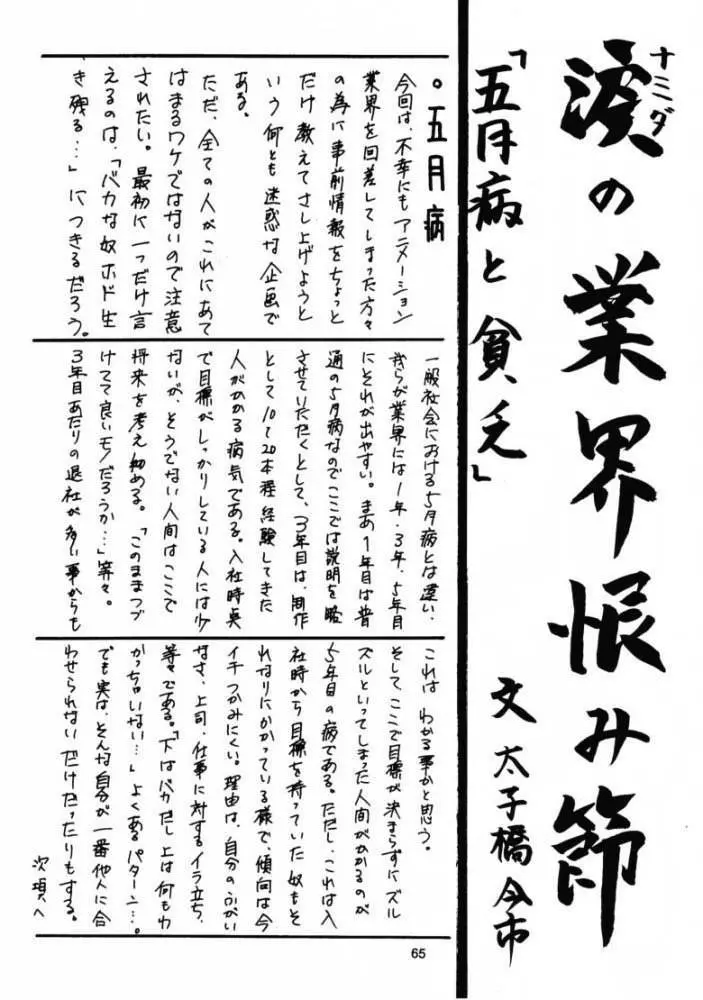 涙の業界恨み節
ナミダ
「五月病と貧乏」
文 太子橋今市
。五月病
今回は、不幸にもアニメーション
業界を回差してしまった方々
の為に事前情報をちょっと
だけ教えてさし上げようと
いう何とも迷惑な企画で
ある。
ただ、全ての人がこれにあて
はまるワケではないので注意
されたい。最初に一つだけ言
えるのは、「バカな奴ホド生
き残る…」につきるだろう。
一般社会における5月病とは違い、
我らが業界には1年・3年・5年目
にそれが出やすい。まあ1年目は普
通の5月病なのでここでは説明を略
させていただくとして、3年目は、制作
として10て20本程経験してきた
人がかかる病気である。入社時点
で目標がしっかりしている人には少
ないが、そうでない人間はここで
将来を考え始める。「このままつづ
けてて良いモノだろうか…」等々。
3年目あたりの退社が多い事からも
これは わかる事かと思う。
そしてここで目標が決まらずにズル
ズルといってしまった人間がかかるのが
5年目の病である。ただし、これは入
社時から目標を持っていた奴もそ
れなりにかかっている様で、傾向は今
イチつかみにくい。理由は、自分のふがい
なさ、上司、仕事に対するイラ立ち、
等々である。「下はバカだし上は何もわ
かっちゃいない…」よくあるパターン…。
でも実は、そんな自分が一番他人に合
わせられないだけだったりもする。
次項へ
65